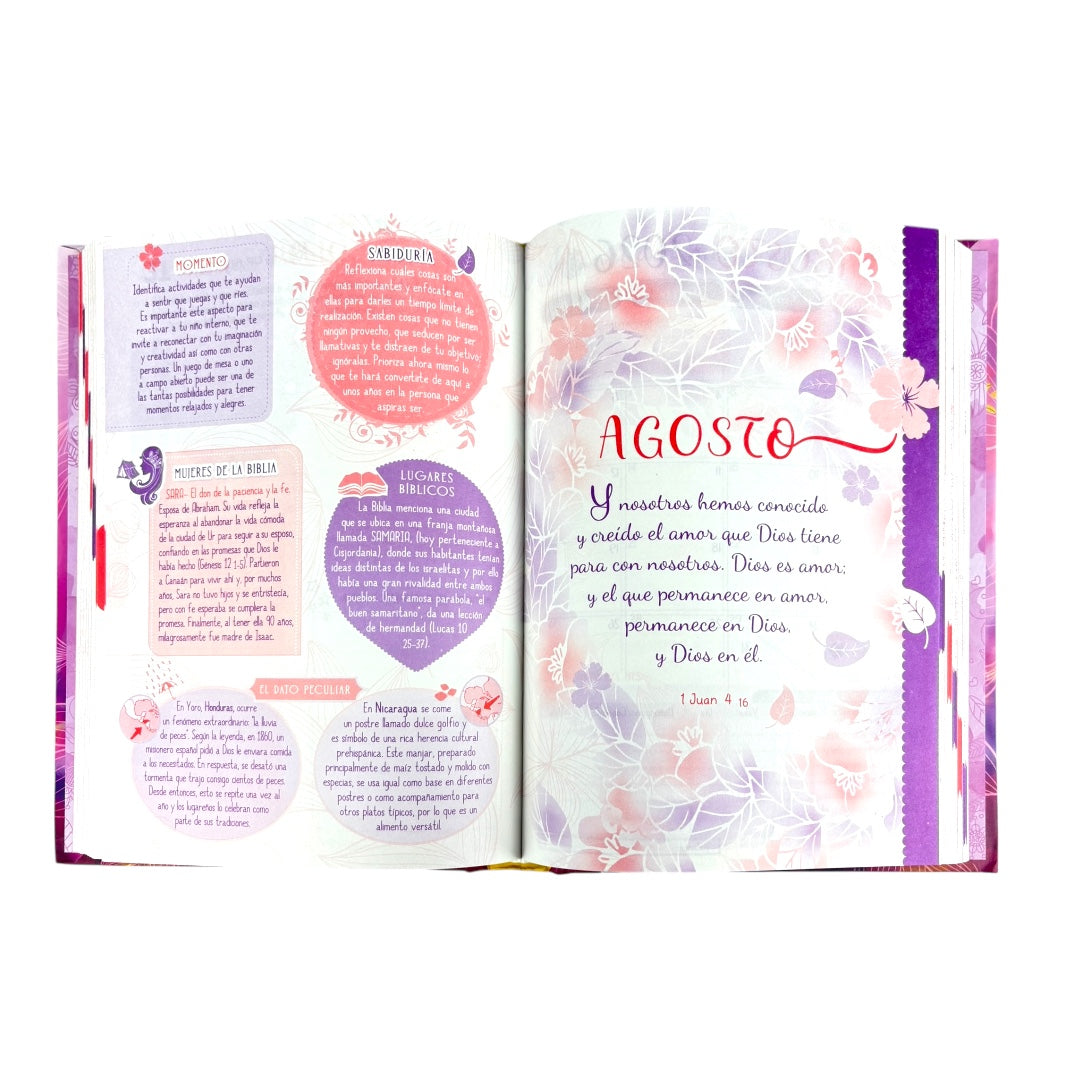 MOMENTO
Identifica actividades que te ayudan
a sentir que juegas y que ríes.
Es importante este aspecto para
reactivar a tu niño interno, que te
invite a reconectar con tu imaginación
y creatividad así como con otras
personas. Un juego de mesa o uno
a campo abierto puede ser una de
las tantas posibilidades para tener
momentos relajados y alegres.
SABIDURÍA
Reflexiona cuáles cosas son
más importantes y enfócate en
ellas para darles un tiempo límite de
realización. Existen cosas que no tienen
ningún provecho, que seducen por ser
llamativas y te distraen de tu objetivo;
ignóralas. Prioriza ahora mismo lo
que te hará convertirte de aquí a
unos años en la persona que
aspiras ser.
MUJERES DE LA BIBLIA
SARA- El don de la paciencia y la fe.
Esposa de Abraham. Su vida refleja la
esperanza al abandonar la vida cómoda
de la ciudad de Ur para seguir a su esposo,
confiando en las promesas que Dios le
había hecho (Génesis 12 1-5). Partieron
a Canaán para vivir ahí y, por muchos
años, Sara no tuvo hijos y se entristecía,
pero con fe esperaba se cumpliera la
promesa. Finalmente, al tener ella 90 años,
milagrosamente fue madre de Isaac.
LUGARES
BÍBLICOS
La Biblia menciona una ciudad
que se ubica en una franja montañosa
llamada SAMARIA, (hoy perteneciente a
Cisjordania), donde sus habitantes tenían
ideas distintas de los israelitas y por ello
había una gran rivalidad entre ambos
pueblos. Una famosa parábola, "el
buen samaritano", da una lección
de hermandad (Lucas 10
25-37).
EL DATO PECULIAR
En Yoro, Honduras, ocurre
un fenómeno extraordinario: "la lluvia
de peces". Según la leyenda, en 1860, un
misionero español pidió a Dios le enviara comida
a los necesitados. En respuesta, se desató una
tormenta que trajo consigo cientos de peces.
Desde entonces, esto se repite una vez al
año y los lugareños lo celebran como
parte de sus tradiciones.
En Nicaragua se come
un postre llamado dulce golfio y
es símbolo de una rica herencia cultural
prehispánica. Este manjar, preparado
principalmente de maíz tostado y molido con
especias, se usa igual como base en diferentes
postres o como acompañamiento para
otros platos típicos, por lo que es un
alimento versátil.
AGOSTO
Y nosotros hemos conocido
y creído el amor que Dios tiene
para con nosotros. Dios es amor;
y el que permanece en amor,
permanece en Dios,
y Dios en él.
1 Juan 4 16